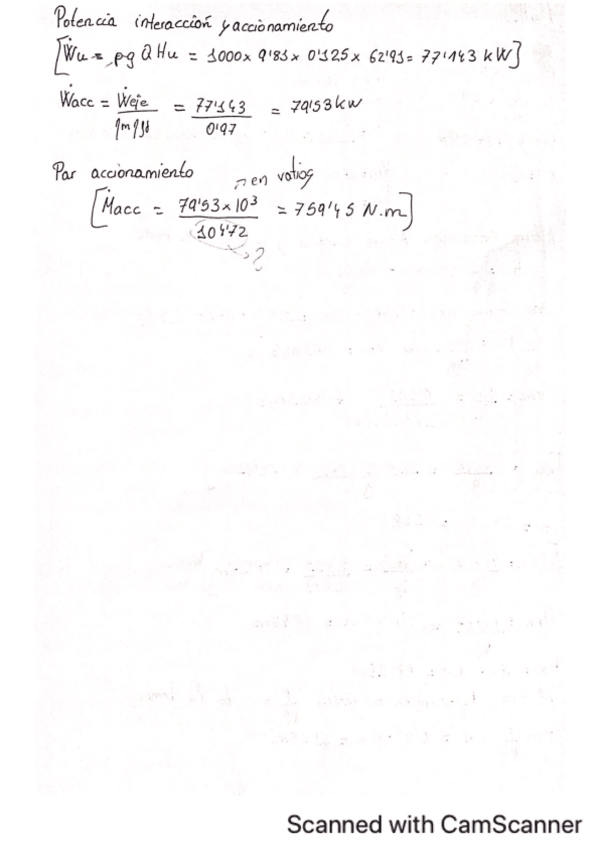 Potencia interacción y accionamiento
[Ẇu = ρg Q Hu = 1000 x 9'81 x 0'125 x 62'91 = 77'143 kW]
Ẇacc = Ẇeje / = 77'143 / 0'97 = 79'53 kW
Par accionamiento
→ en vatios
[Macc = 79'53 x 10³ / 104'72 = 759'45 N.m]
→ ?
Scanned with CamScanner